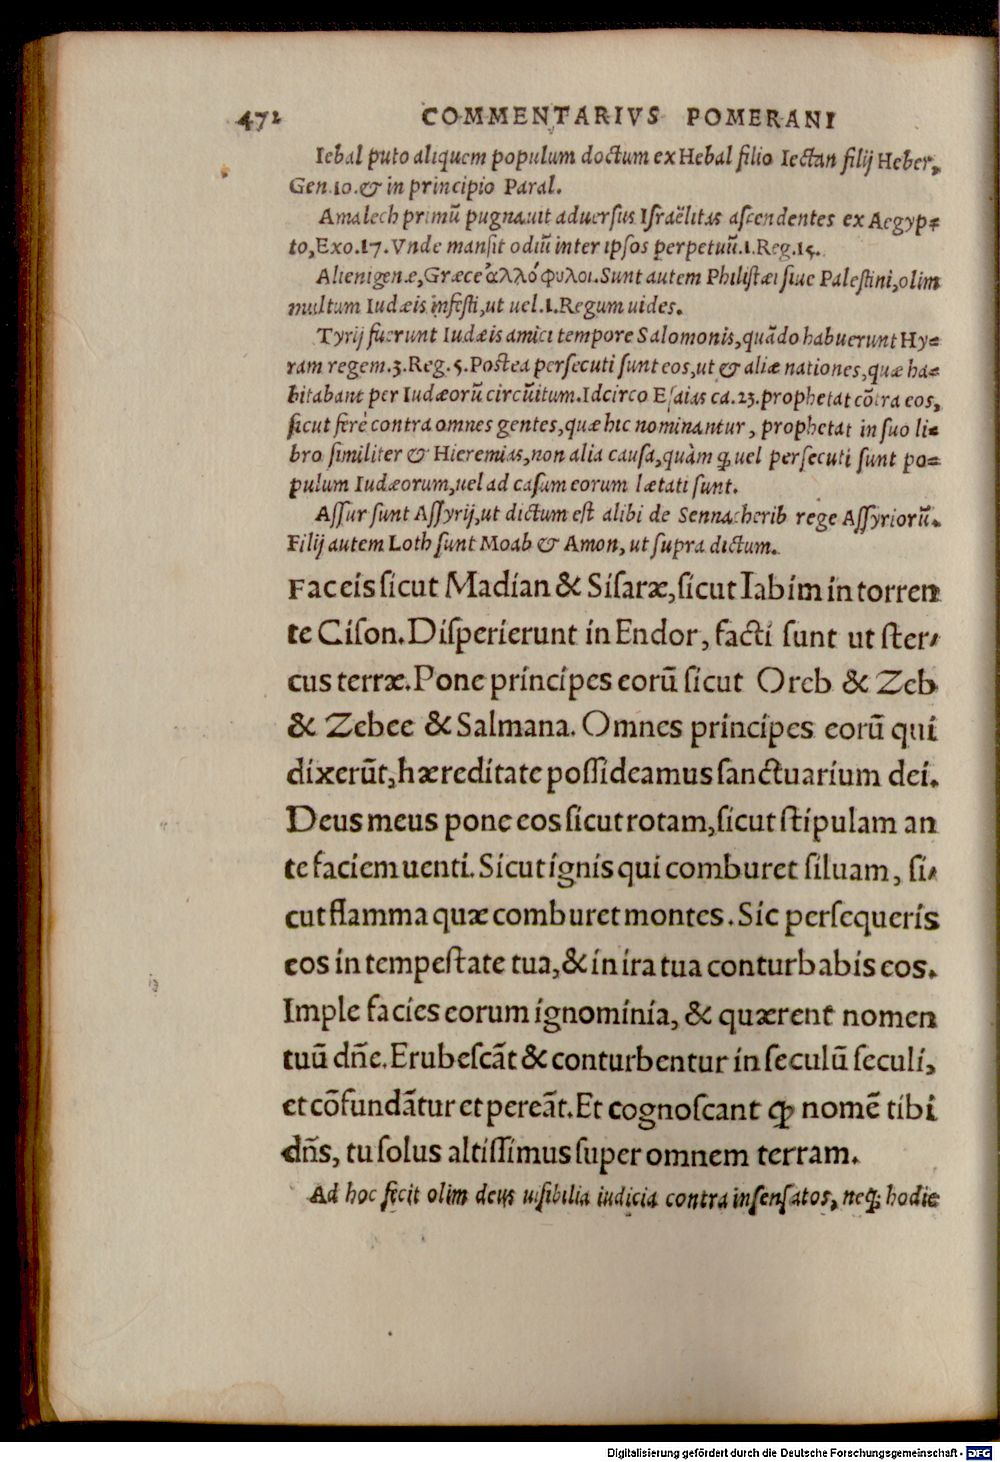 472 COMMENTARIVS POMERANI
Iebal puto aliquem populum doctum ex Hebal filio Iectan filij Heber,
Gen.10.& in principio Paral.
Amalech primũ pugnauit aduersus Israëlitas ascendentes ex Aegyp⸗
to,Exo.17.Vnde mansit odiũ inter ipsos perpetuũ.1.Reg.15.
Alienigenæ,Græce ἀλλόφυλοι.Sunt autem Philistæi siue Palestini,olim
multum Iudæis infesti,ut uel.1.Regum uides.
Tyrij fuerunt Iudæis amici tempore Salomonis,quãdo habuerunt Hy⸗
ram regem.3.Reg.5.Postea persecuti sunt eos,ut & aliæ nationes,quæ ha⸗
bitabant per Iudæorũ circũitum.Idcirco Esaias ca.23.prophetat cõtra eos,
sicut ferè contra omnes gentes,quæ hic nominantur, prophetat in suo li⸗
bro similiter & Hieremias,non alia causa,quàm ꝙ uel persecuti sunt po⸗
pulum Iudæorum,uel ad casum eorum lætati sunt.
Assur sunt Assyrij,ut dictum est alibi de Sennacherib rege Assyriorũ.
Filij autem Loth sunt Moab & Amon, ut supra dictum.
Faceis sicut Madian & Sisaræ,sicut Iabim in torren
te Cison.Disperierunt in Endor, facti sunt ut ster⸗
cus terræ.Pone principes eorũ sicut Oreb & Zeb
& Zebee & Salmana. Omnes principes eorũ qui
dixerũt,hæreditate possideamus sanctuarium dei.
Deus meus pone eos sicut rotam,sicut stipulam an
te faciem uenti.Sicut ignis qui comburet siluam, si⸗
cut flamma quæ comburet montes.Sic persequeris
eos in tempestate tua,& in ira tua conturbabis eos.
Imple facies eorum ignominia, & quærent nomen
tuũ dñe.Erubescãt & conturbentur in seculũ seculi,
et cõfundãtur et pereãt.Et cognoscant ꝙ nomẽ tibi
dñs, tu solus altissimus super omnem terram.
Ad hoc fecit olim deus uisibilia iudicia contra insensatos, neqꝫ hodie
Digitalisierung gefördert durch die Deutsche Forschungsgemeinschaft - DFG